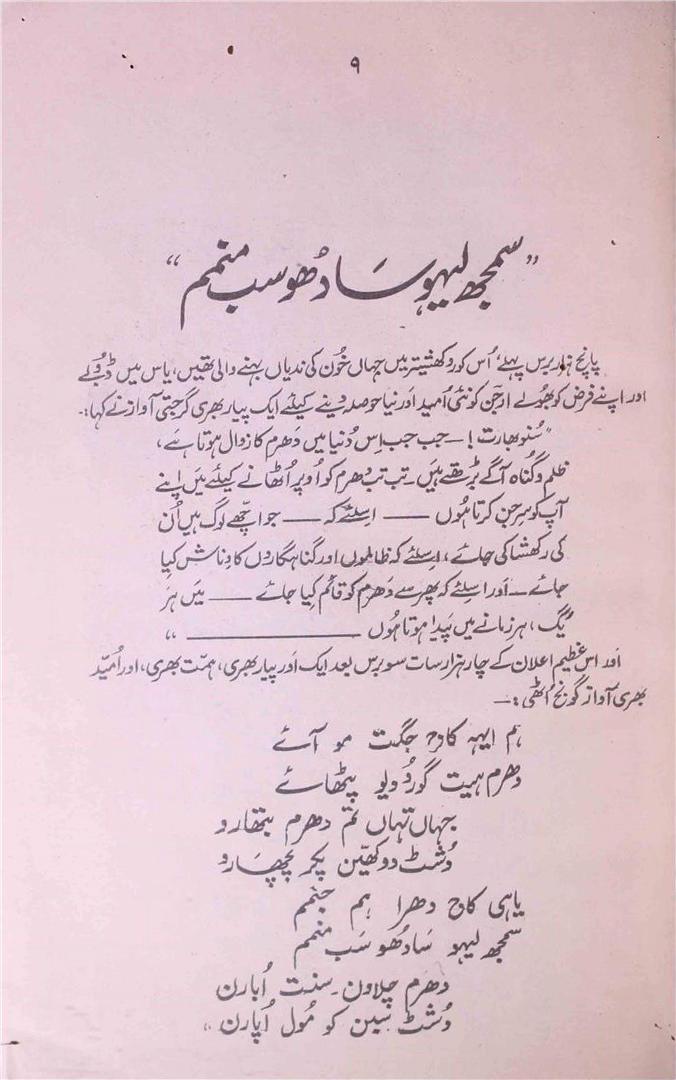 ۹
"سمجھ لیہو سادھو سب منمم"
پانچ ہزار برس پہلے، اُس کوروکھشیتر میں جہاں خُون کی ندیاں بہنے والی تھیں، یاس میں ڈوبے
اور اپنے فرض کو بھُولے ارجن کو نئی اُمید اور نیا حوصلہ دینے کیلئے ایک پیار بھری گرجتی آواز نے کہا:۔
"سُنو بھارت! — جب جب اِس دُنیا میں دَھرم کا زوال ہوتا ہے،
ظلم و گناہ آگے بڑھتے ہیں۔ تب تب دھرم کو اُوپر اُٹھانے کیلئے میں اپنے
آپ کو سِرجن کرتا ہُوں —— اسلئے کہ —— جو اچھے لوگ ہیں اُن
کی رکھشا کی جائے، اسلئے کہ ظالموں اور گناہگاروں کا وِناش کیا
جائے — اور اسلئے کہ پھر سے دَھرم کو قائم کیا جائے —— میں ہر
یُگ، ہر زمانے میں پَیدا ہوتا ہُوں ———————"
اَور اس عظیم اعلان کے چار ہزار سات سو برس بعد ایک اَور پیار بھری، ہمّت بھری، اور اُمید
بھری آواز گونج اُٹھی:۔
ہم ایہہ کاج جگت مو آئے
دھرم ہیت گورُو دیو پٹھائے
جہاں تہاں تم دھرم بتھارو
دُشٹ دوکھین پکر پچھارو
یاہی کاج دھرا ہم جنمم
سمجھ لیہو سَادھُو سَب منمم
دھرم چلاون سنت اُبارن
دُشٹ سبین کو مُول اُپارن"